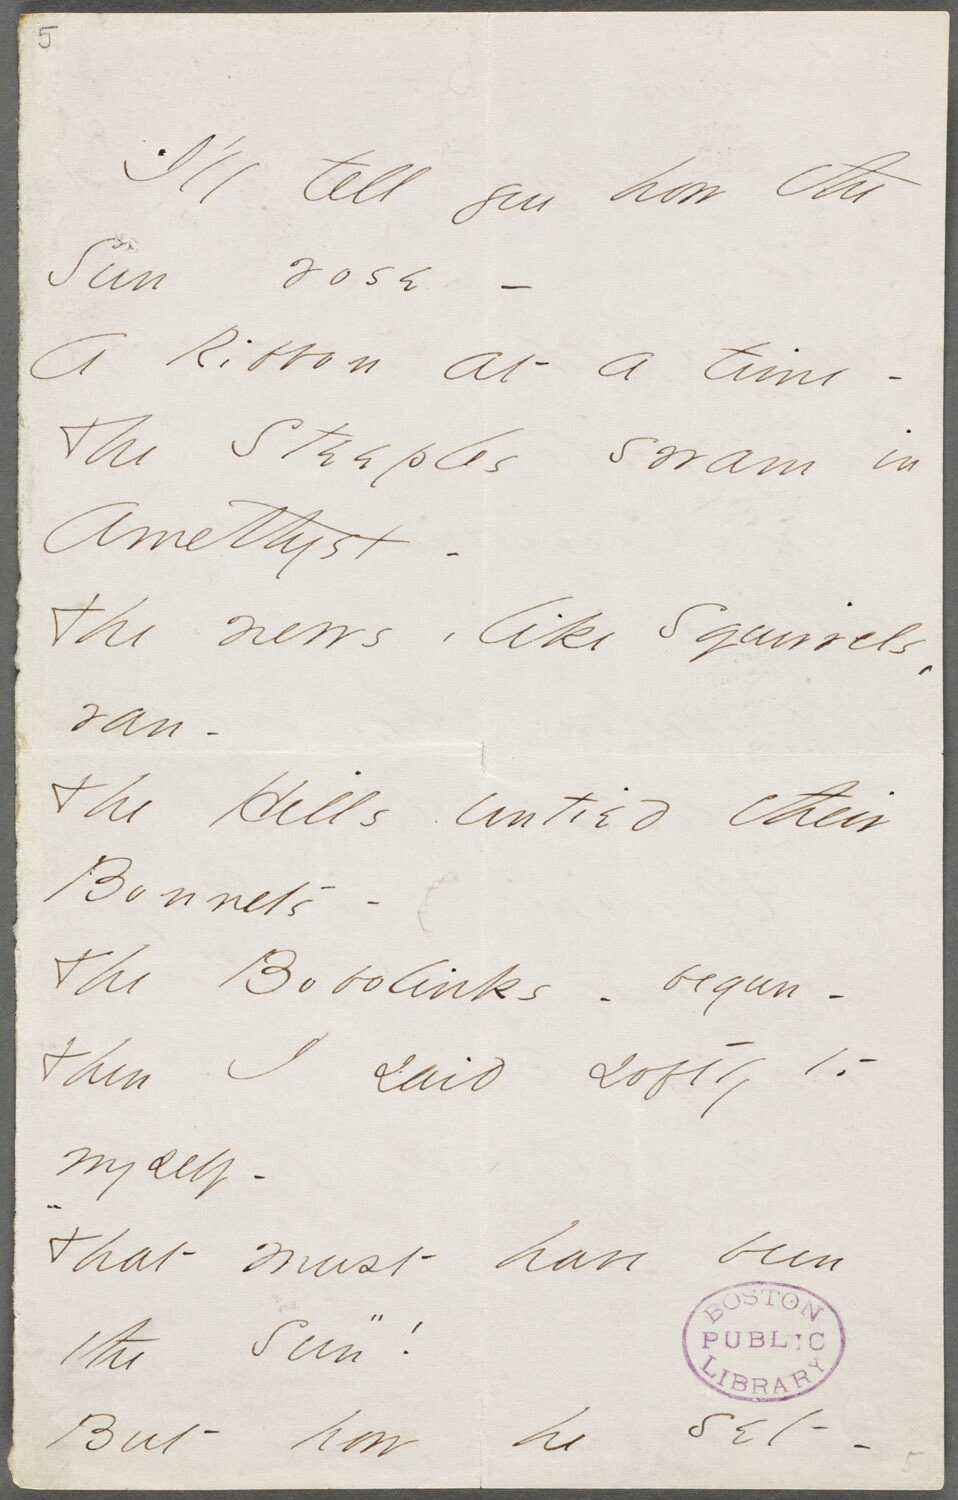 5
I'll tell you how the
Sun rose –
A Ribbon at a time –
the Steeples swam in
Amethyst –
the news, like Squirrels,
ran –
the Hills untied their
Bonnets –
the Bobolinks – begun –
then I said softly to
myself –
"that must have been
the Sun"!
But how he set –
BOSTON
PUBLIC
LIBRARY
5